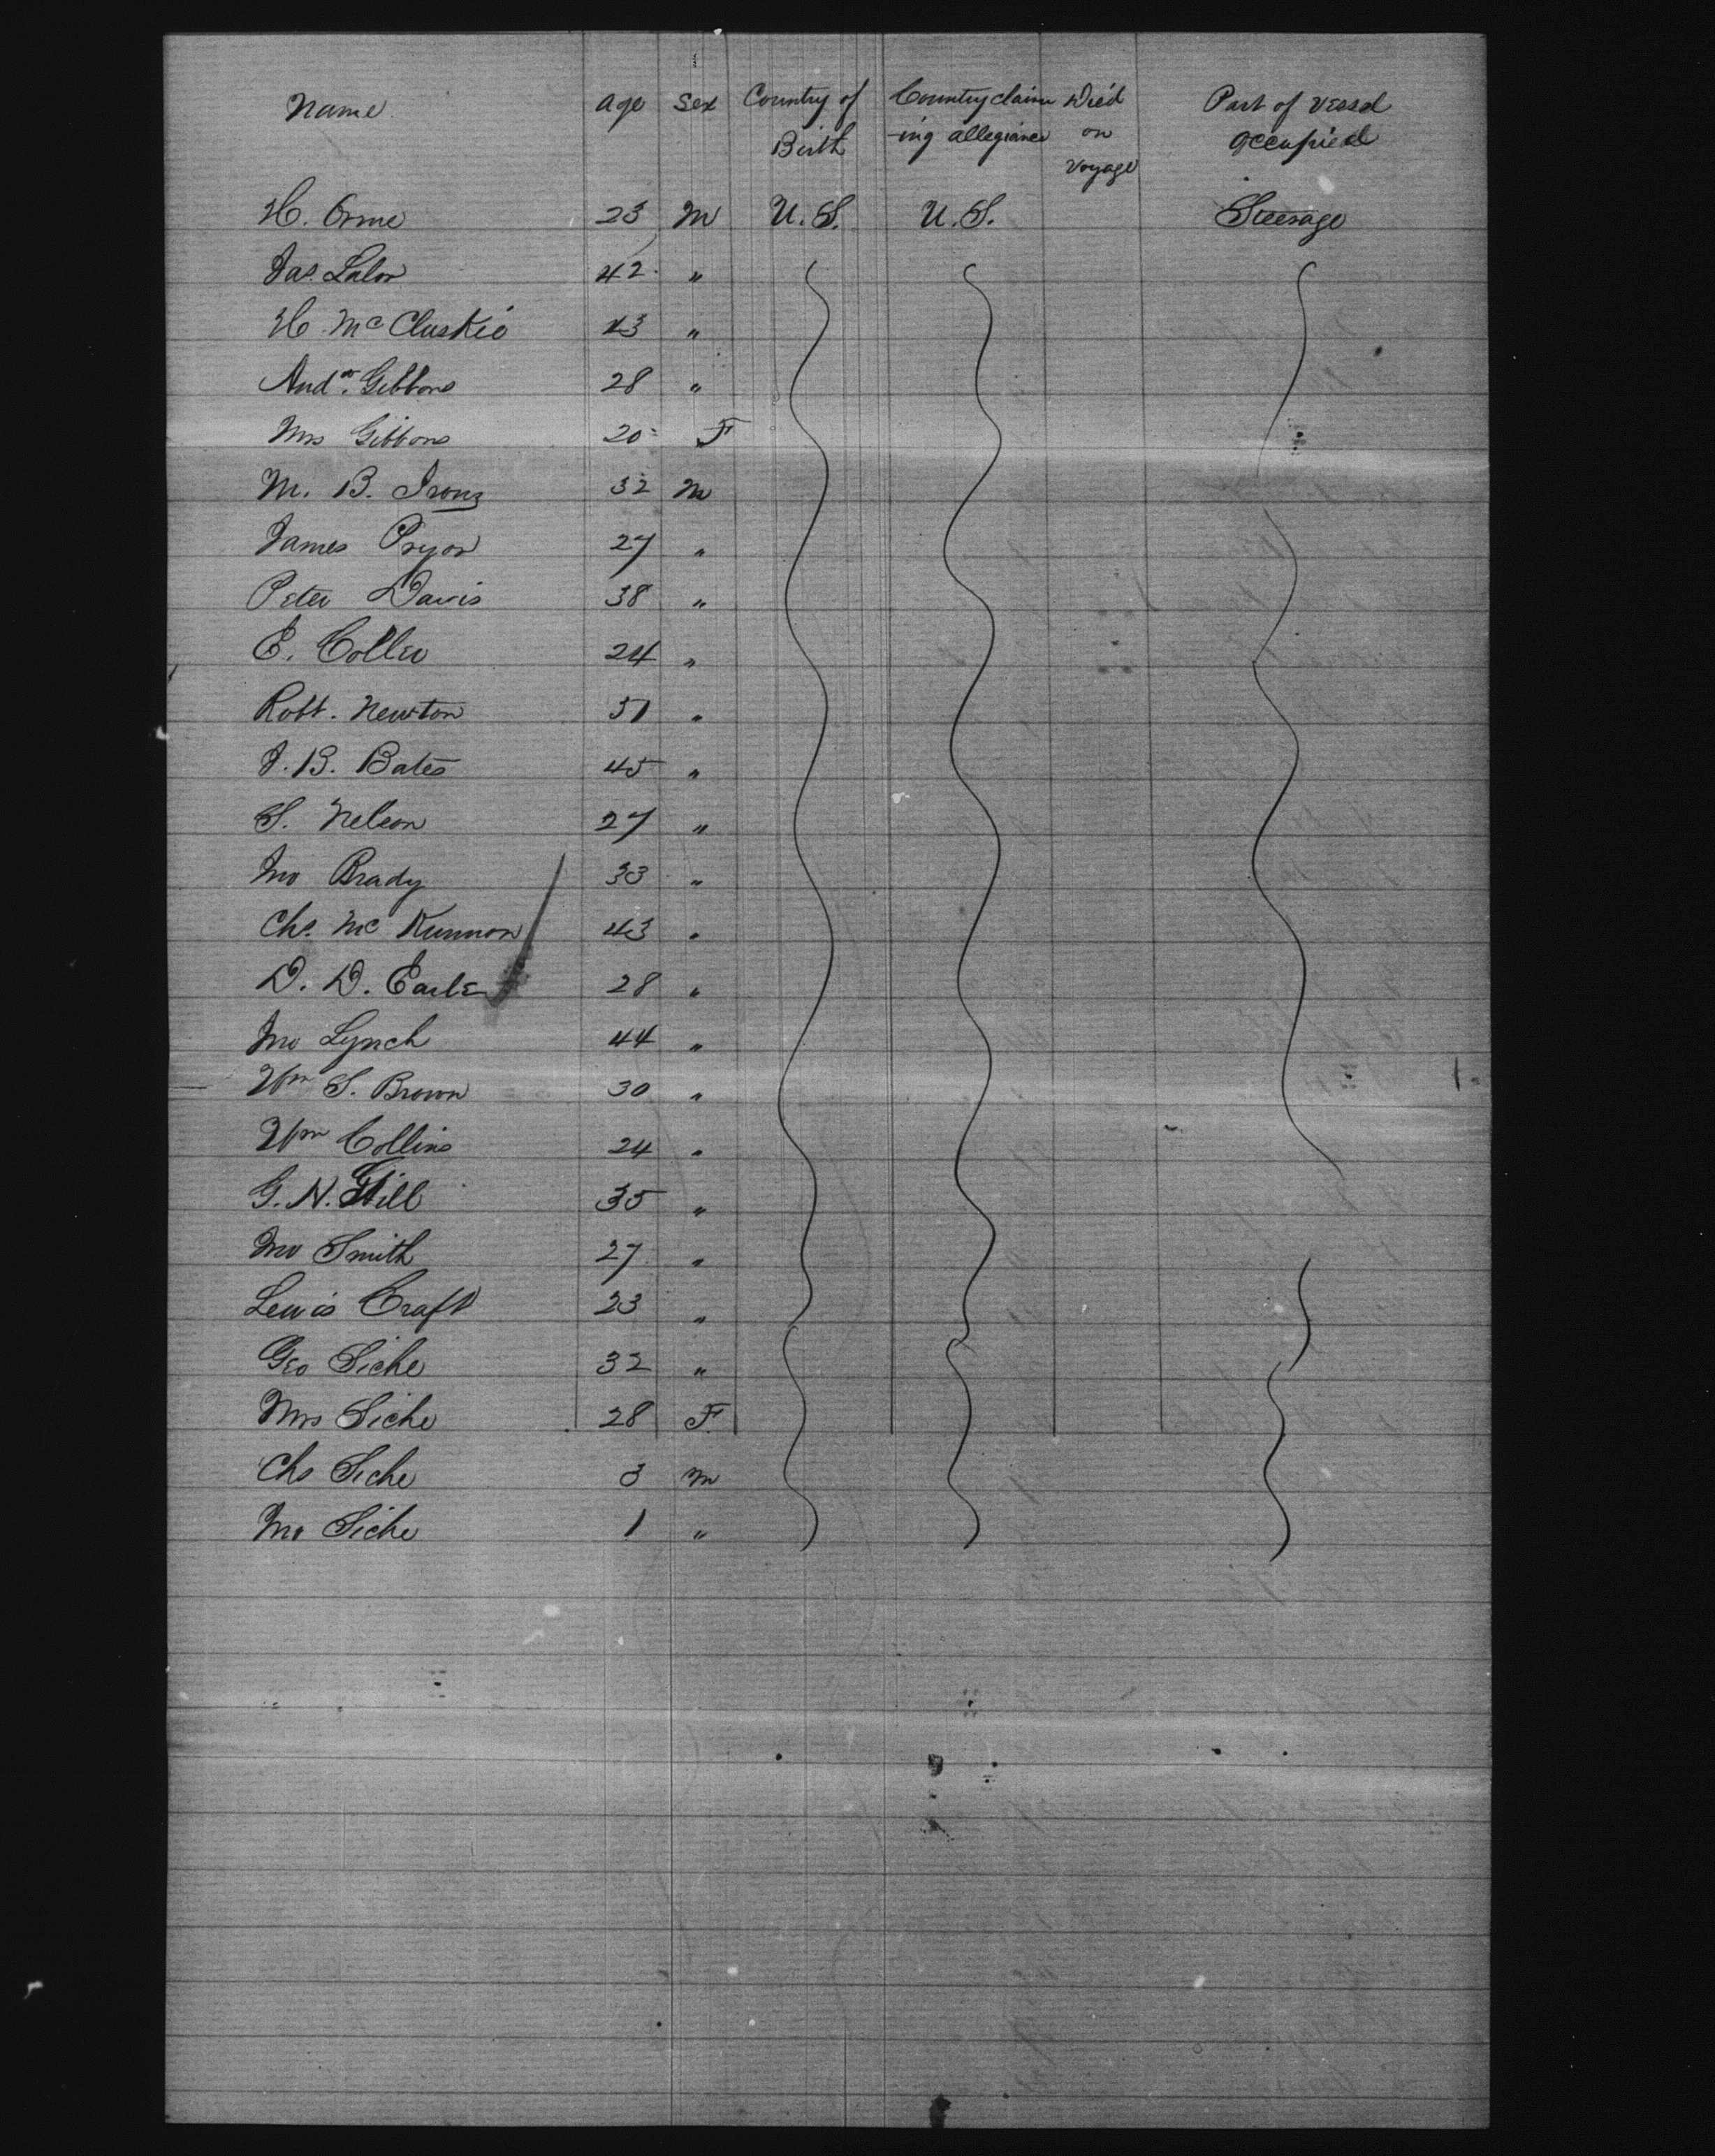 Name Age Sex Country of Birth Country claim-ing allegiance Died on Voyage Part of Vessel Occupied
H. Orme 23 M U.S. U.S. Steerage
Jas. Lalor 42 "
H. McCluskie 43 "
Andw. Gibbons 28 "
Mrs Gibbons 20 F
M. B. Irons 32 M
James Pryor 27 "
Peter Davis 38 "
E. Coller 24 "
Robt. Newton 51 "
J. B. Bates 45 "
S. Nelson 27 "
Jno Brady 33 "
Chs. Mc Kunnon 43 "
D. D. Earle 28 "
Jno Lynch 44 "
Wm S. Brown 30 "
Wm Collins 24 "
G. N. Hill 35 "
Jno Smith 27 "
Lewis Craft 23 "
Geo Siche 32 "
Mrs Siche 28 F
Chs Siche 3 M
Jno Siche 1 "